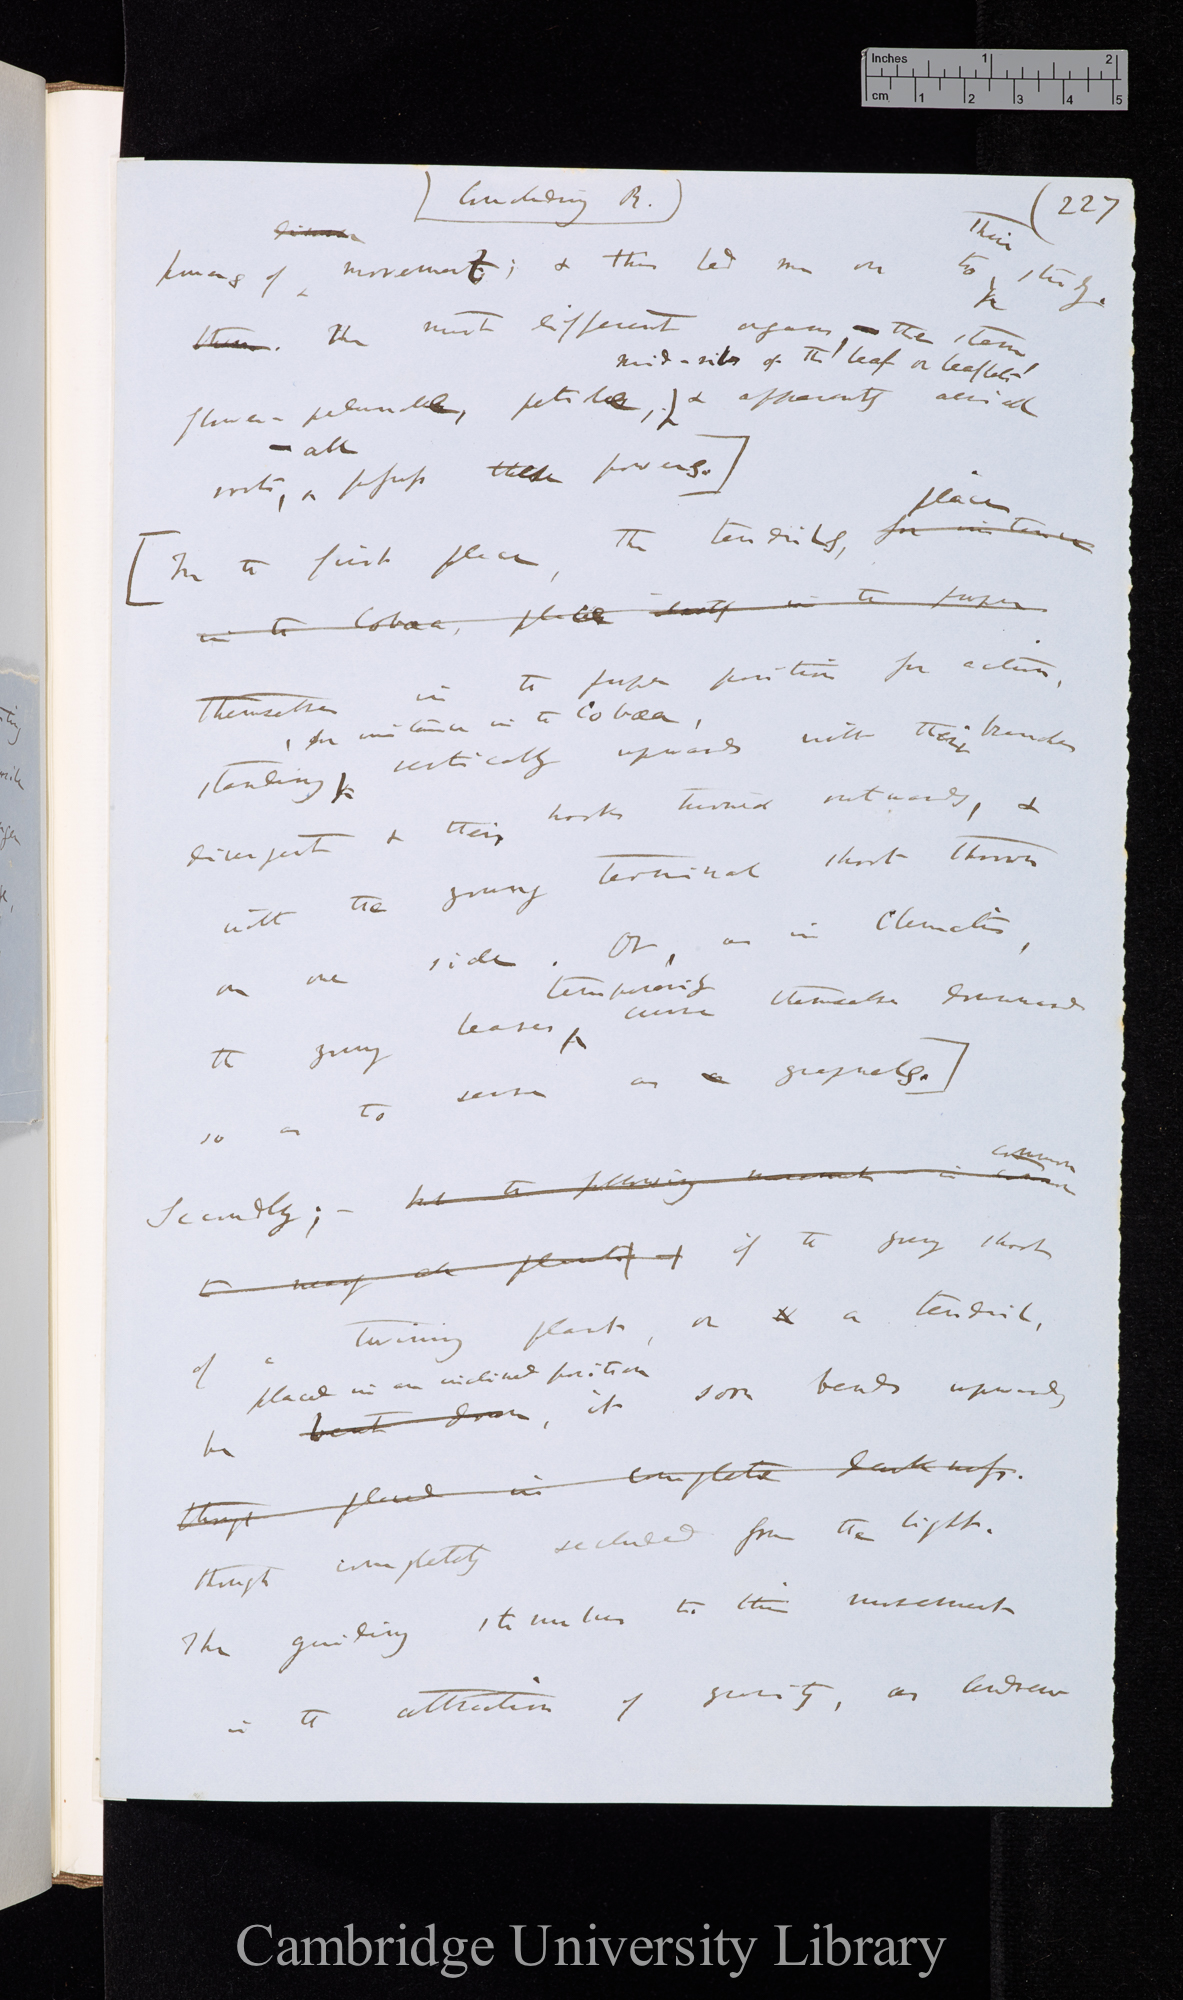 Inches 1 2
cm 1 2 3 4 5
Concluding R.
(227
powers of movement; & this led me on to their study.
them. The most different organs, – the stem
mid-ribs of the leaf or leaflets
flower-peduncle, petiole, & apparently aerial
– all
roots, possess these powers.]
place
[In the first place, the tendrils, for instance
in the Cobæa, place in the proper
themselves in the proper position for action,
, for instance in the Cobæa,
standing vertically upwards with their branches
divergent & their hooks turned outwards, &
with the young terminal shoot thrown
on one side. Or, as in Clematis,
temporarily
the young leaves curve themselves downwards
so as to serve as a grapnels.]
common
Secondly; – but the following movement is
to many all plants if the young shoot
of a twining plant, or a tendril,
placed in an inclined position
be bent down, it soon bends upwards
though placed in complete darkness.
though completely secluded from the light.
The guiding stimulus to this movement
is the attraction of gravity, as Andrew
Cambridge University Library